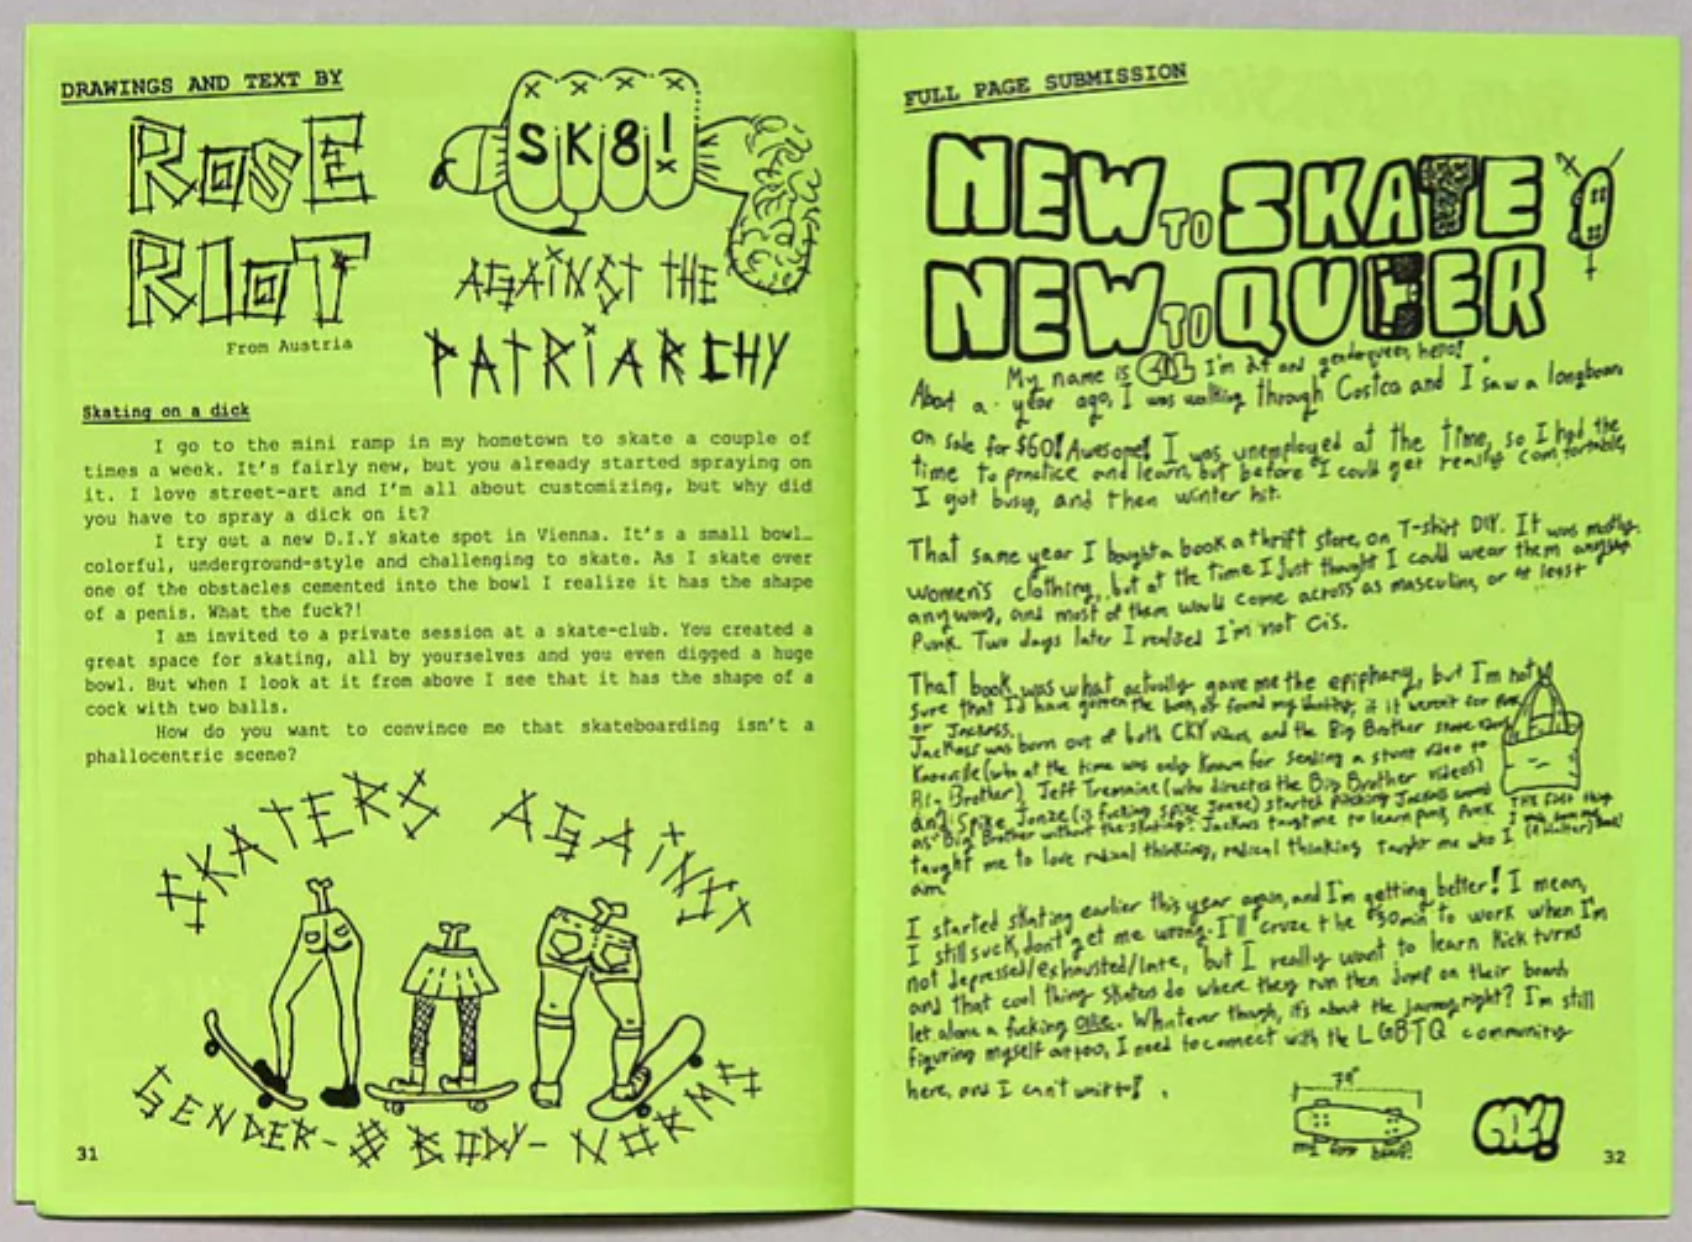 DRAWINGS AND TEXT BY
ROSE
RIOT
From Austria
SK8!
AGAINST THE
PATRIARCHY
Skating on a dick
I go to the mini ramp in my hometown to skate a couple of
times a week. It's fairly new, but you already started spraying on
it. I love street-art and I'm all about customizing, but why did
you have to spray a dick on it?
I try out a new D.I.Y skate spot in Vienna. It's a small bowl…
colorful, underground-style and challenging to skate. As I skate over
one of the obstacles cemented into the bowl I realize it has the shape
of a penis. What the fuck?!
I am invited to a private session at a skate-club. You created a
great space for skating, all by yourselves and you even digged a huge
bowl. But when I look at it from above I see that it has the shape of a
cock with two balls.
How do you want to convince me that skateboarding isn't a
phallocentric scene?
SKATERS AGAINST
GENDER- & BODY- NORMS
31
FULL PAGE SUBMISSION
NEW TO SKATE
NEW TO QUEER
My name is I'm and genderqueer, hello!
About a year ago, I was walking through Costco and I saw a longboard
on sale for $60! Awesome! I was unemployed at the time, so I had the
time to practice and learn, but before I could get really comfortable,
I got busy, and then winter hit.
That same year I bought a book a thrift store, on T-shirt DIY. It was mostly
women's clothing, but at the time I just thought I could wear them
anyway, and most of them would come across as masculine, or at least
Punk. Two days later I realized I'm not cis.
That book was what actually gave me the epiphany, but I'm not
sure that I'd have gotten the book, or found my identity, if it weren't for
or Jackass.
Jackass was born out of both CKY videos, and the Big Brother
Knoxville (who at the time was only known for sending a stunt video to
Big Brother), Jeff Tremaine (who directed the Big Brother videos)
and Spike Jonze (is fucking Spike Jonze) started pitching Jackass
as "Big Brother without the skating". Jackass taught me to learn punk, Punk
taught me to love radical thinking, radical thinking taught me who I
am.
The first thing
I made from
I started skating earlier this year again, and I'm getting better! I mean,
I still suck, don't get me wrong. I'll cruze the 30min to work when I'm
not depressed/exhausted/late, but I really want to learn kick turns
and that cool thing skaters do where they run then jump on their board,
let alone a fucking ollie. Whatever though, it's about the journey right? I'm still
figuring myself out too, I need to connect with the LGBTQ community
here, and I can't wait to!
32